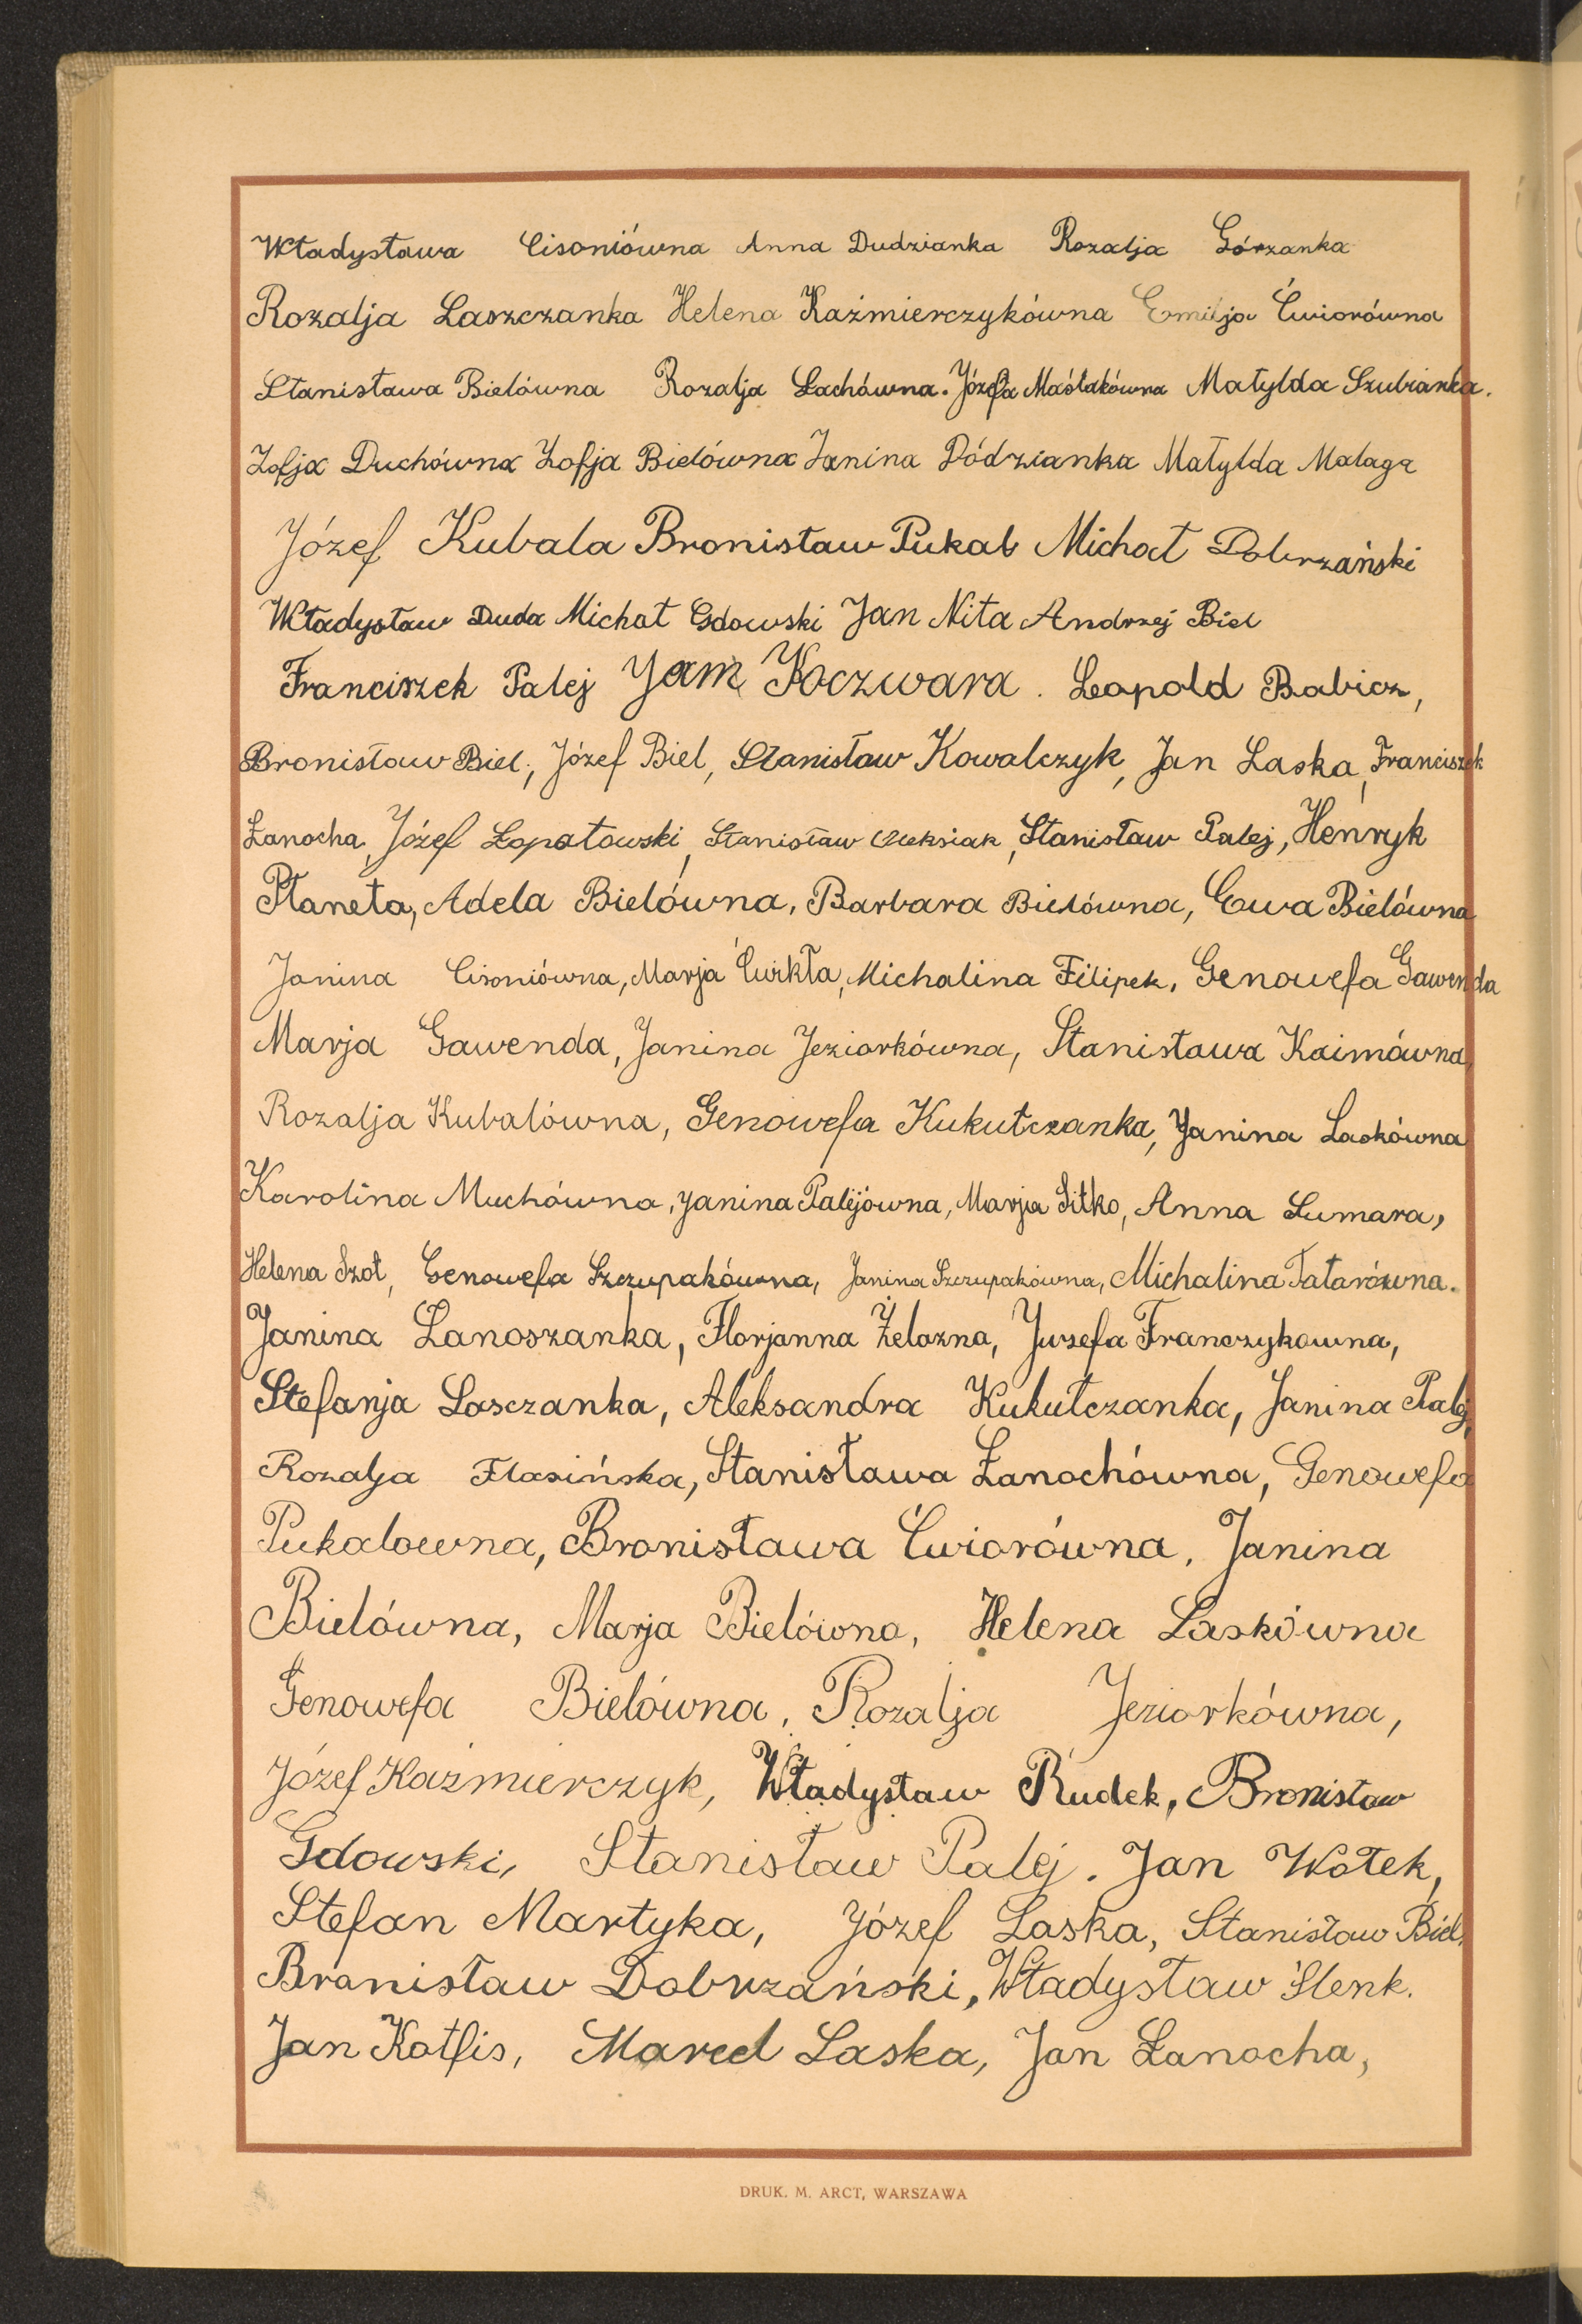 Władysława Cisoniówna Anna Dudzianka Rozalja Górzanka
Rozalja Laszczanka Helena Kaźmierczykówna Emilja Ćwiorówna
Stanisława Bielówna Rozalja Lachówna. Józefa Maślakówna Matylda Szubianka.
Zofja Duchówna Zofja Bielówna Janina Dódzianka Matylda Malaga
Józef Kubala Bronisław Pukal Michał Dobrzański
Władysław Duda Michał Gdowski Jan Nita Andrzej Biel
Franciszek Palej Jam Koczwara. Leopold Babicz,
Bronisław Biel, Józef Biel, Stanisław Kowalczyk, Jan Laska, Franciszek
Łanocha, Józef Łopatowski, Stanisław Oleksiak, Stanisław Palej, Henryk
Płaneta, Adela Bielówna, Barbara Bielówna, Ewa Bielówna
Janina Cisoniówna, Marja Ćwikła, Michalina Filipek, Genowefa Gawenda
Marja Gawenda, Janina Jeziorkówna, Stanisława Kaimówna,
Rozalja Kubalówna, Genowefa Kukułczanka, Janina Laskówna
Karolina Muchówna, Janina Palejówna, Marja Sitko, Anna Sumara,
Helena Szot, Genowefa Szczupakówna, Janina Szczupakówna, Michalina Tatarówna.
Janina Łanoszanka, Florjanna Żelazna, Juzefa Franczykowna,
Stefanja Lasczanka, Aleksandra Kukułczanka, Janina Palej,
Rozalja Flasińska, Stanisława Łanochówna, Genowefa
Pukalowna, Bronisława Ćwiorówna, Janina
Bielówna, Marja Bielówna, Helena Laskówna
Genowefa Bielówna, Rozalja Jeziorkówna,
Józef Kaźmierczyk, Władysław Rudek, Bronisław
Gdowski, Stanisław Palej. Jan Wołek,
Stefan Martyka, Józef Laska, Stanisław Biel,
Bronisław Dobrzański, Władysław Ślenk.
Jan Kotfis, Marcel Laska, Jan Łanocha,
DRUK. M. ARCT, WARSZAWA